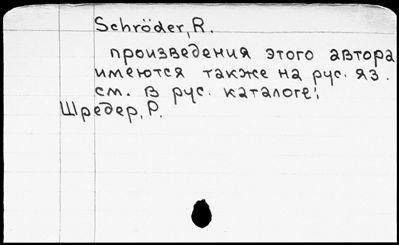 Schröder, R.
произведения этого автора
имеются также на рус. яз.
см. в рус. каталоге:
Шредер, Р.